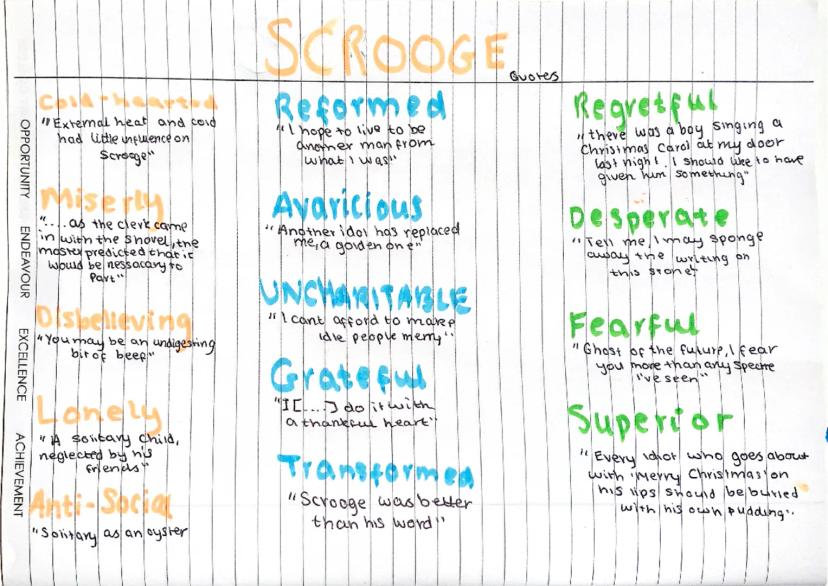 SCROOGE
Quotes
OPPORTUNITY ENDEAVOUR EXCELLENCE ACHIEVEMENT
Cold-hearted
"External heat and cold
had little influence on
Scrooge"
Miserly
"....as the clerk came
in with the shovel, the
master predicted that it
would be nessacary to
Part"
Disbelieving
"You may be an undigesting
bit of beef"
Lonely
"A solitary child,
neglected by his
friends"
Anti-Social
"Solitary as an oyster
Reformed
"I hope to live to be
another man from
what I was"
Avaricious
"Another idol has replaced
me, a golden one"
UNCHARITABLE
"I cant afford to make
idle people merry"
Grateful
"I[....] do it with
a thankful heart"
Transformed
"Scrooge was better
than his word"
Regretful
"there was a boy singing a
Christmas Carol at my door
last night. I should like to have
given him something"
Desperate
"Tell me, I may sponge
away the writing on
this stone"
Fearful
"Ghost of the future, I fear
you more than any spectre
I've seen"
Superior
"Every idiot who goes about
with 'Merry Christmas' on
his lips should be buried
with his own pudding".